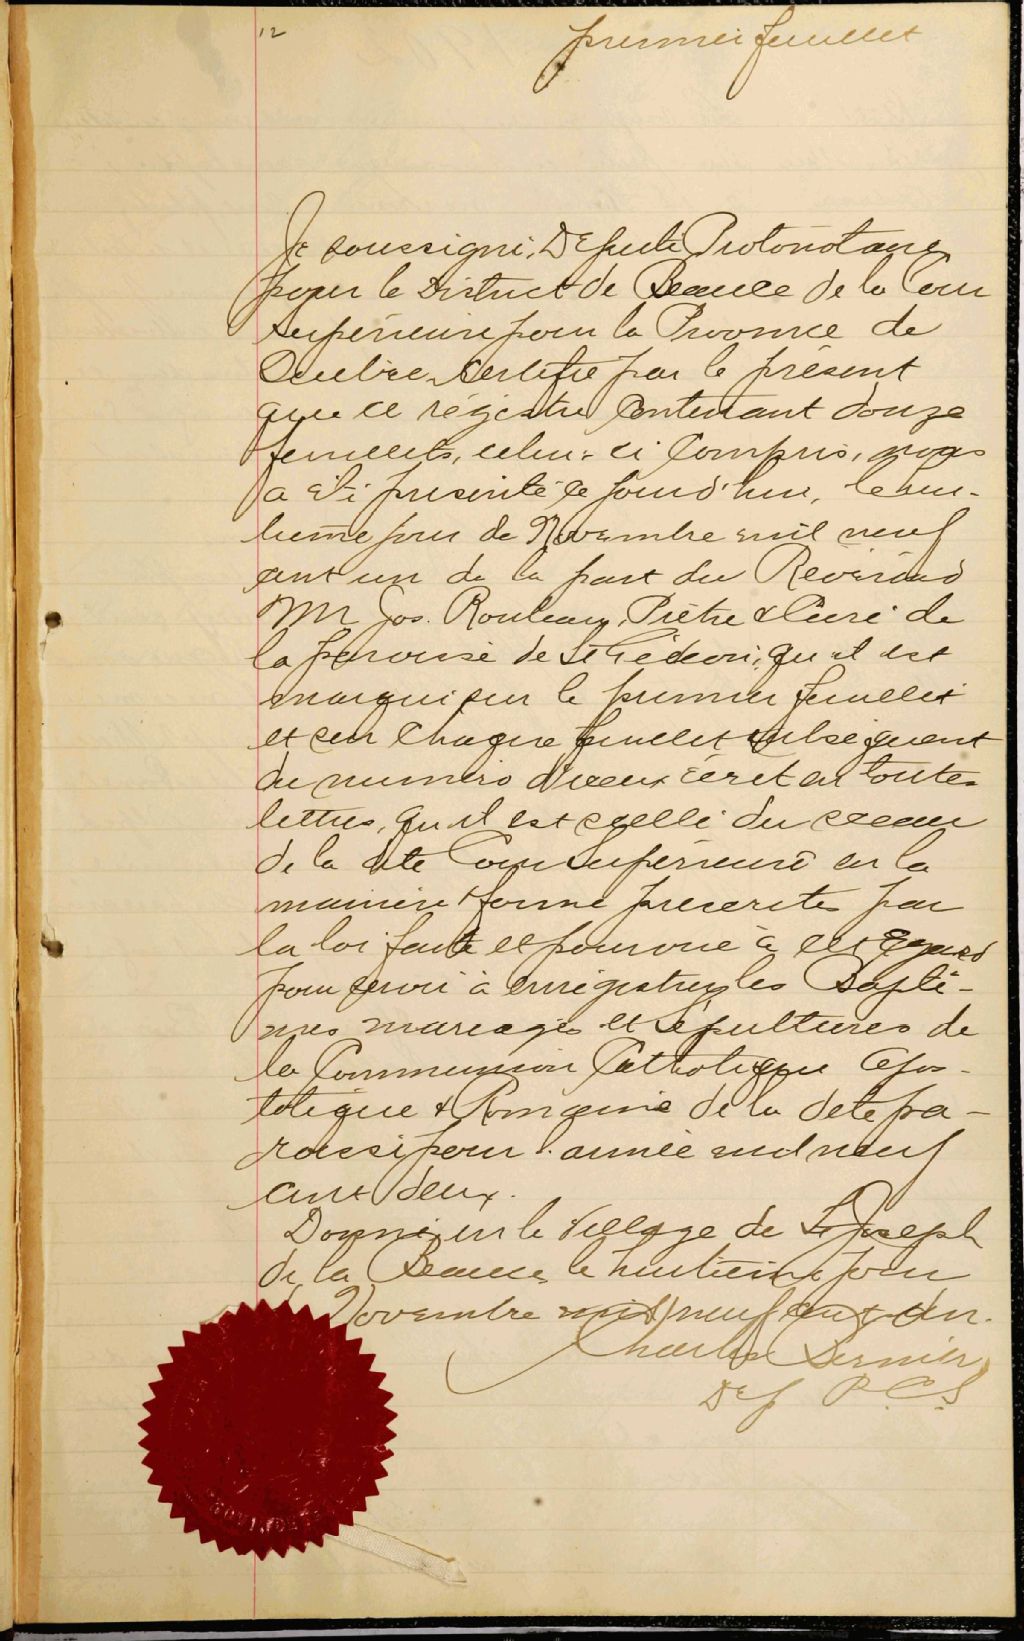 12
premier feuillet
Je soussigné, Député Protonotaire
pour le District de Beauce de la Cour
Supérieure pour la Province de
Québec certifie par le présent
que ce régistre contenant douze
feuillets, celui-ci compris, nous
a été présenté ce jourd'hui, le hui-
tième jour de Novembre mil neuf
cent un de la part du Révérend
Mr Jos. Rouleau, Prêtre & Curé de
la paroisse de St Gédéon, qu'il est
marqué sur le premier feuillet
et sur chaque feuillet subséquent
du numéro d'iceux écrit en toutes
lettres, qu'il est scellé du sceau
de la dite Cour Supérieure en la
manière & forme prescrites par
la loi faite et pourvue à cet égard
pour servir à enrégistrer les Baptê-
mes mariages et Sépultures de
la Communion Catholique Apos-
tolique & Romaine de la dite pa-
roisse pour l'année mil neuf
cent deux.
Donné en le Village de St Joseph
de la Beauce, le huitième jour
de Novembre mil neuf cent un.
Charles
Dep P.C.S.